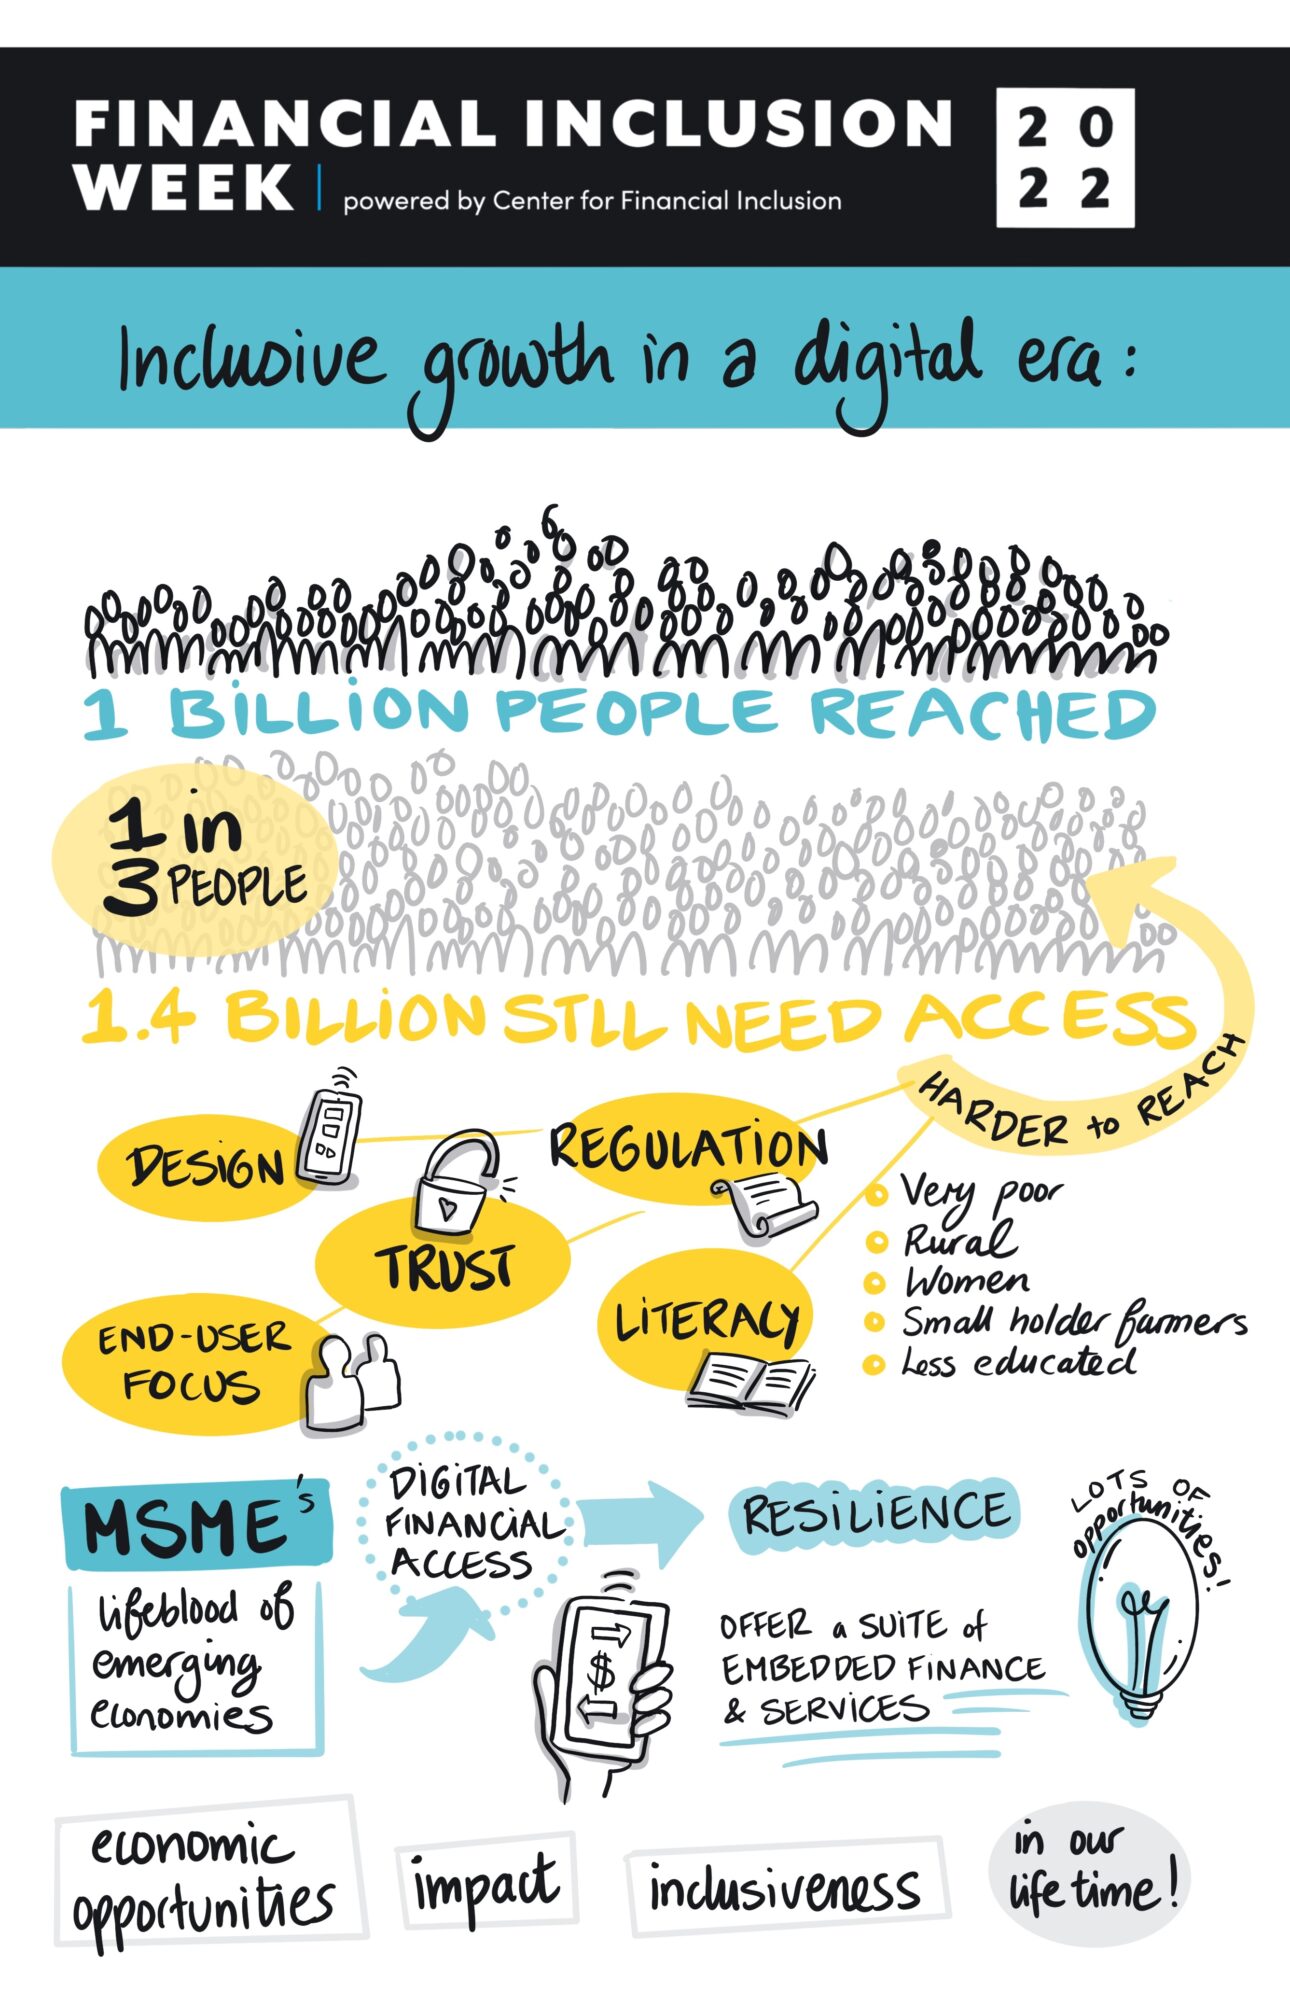 FINANCIAL INCLUSION
WEEK | powered by Center for Financial Inclusion
20
22
Inclusive growth in a digital era:
1 BILLION PEOPLE REACHED
1 in
3 PEOPLE
1.4 BILLION STLL NEED ACCESS
HARDER to REACH
DESIGN
REGULATION
TRUST
LITERACY
END-USER
FOCUS
Very poor
Rural
Women
Small holder farmers
Less educated
MSME's
lifeblood of
emerging
economies
DIGITAL
FINANCIAL
ACCESS
$
RESILIENCE
OFFER a SUITE of
EMBEDDED FINANCE
& SERVICES
LOTS OF
opportunities!
economic
opportunities
impact
inclusiveness
in our
life time!